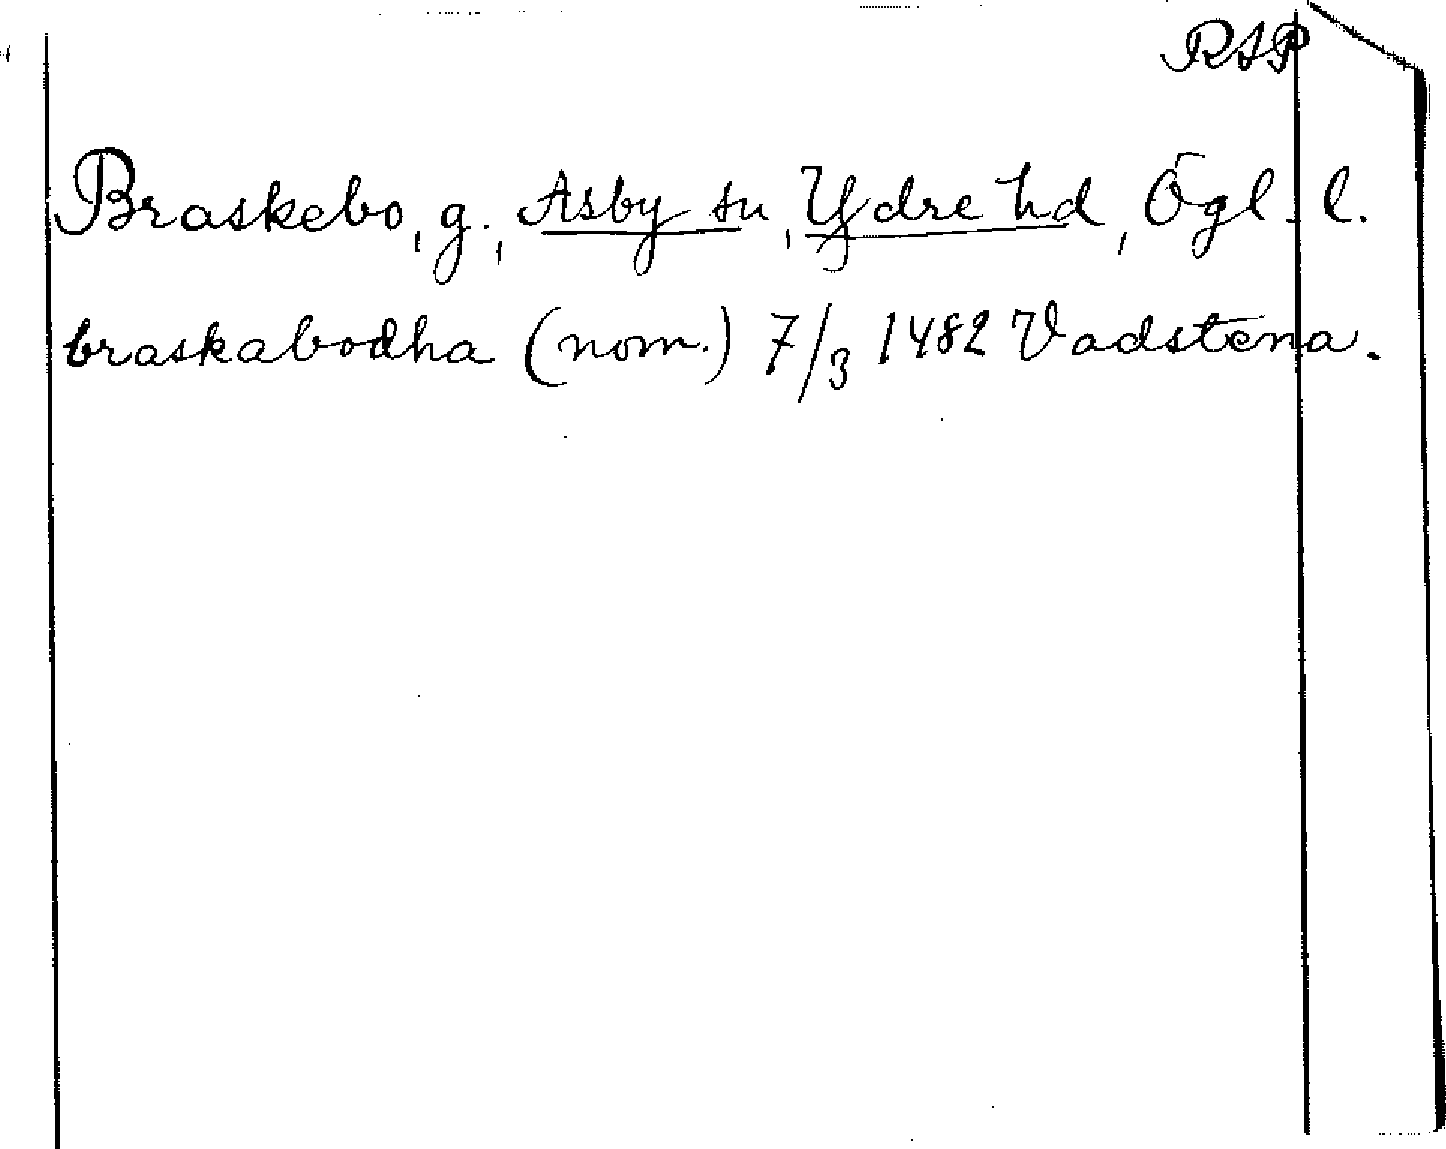 RAP
Braskebo, g., Asby sn, Ydre hd, Ögl. l.
braskabodha (nom.) 7/3 1482 Vadstena.